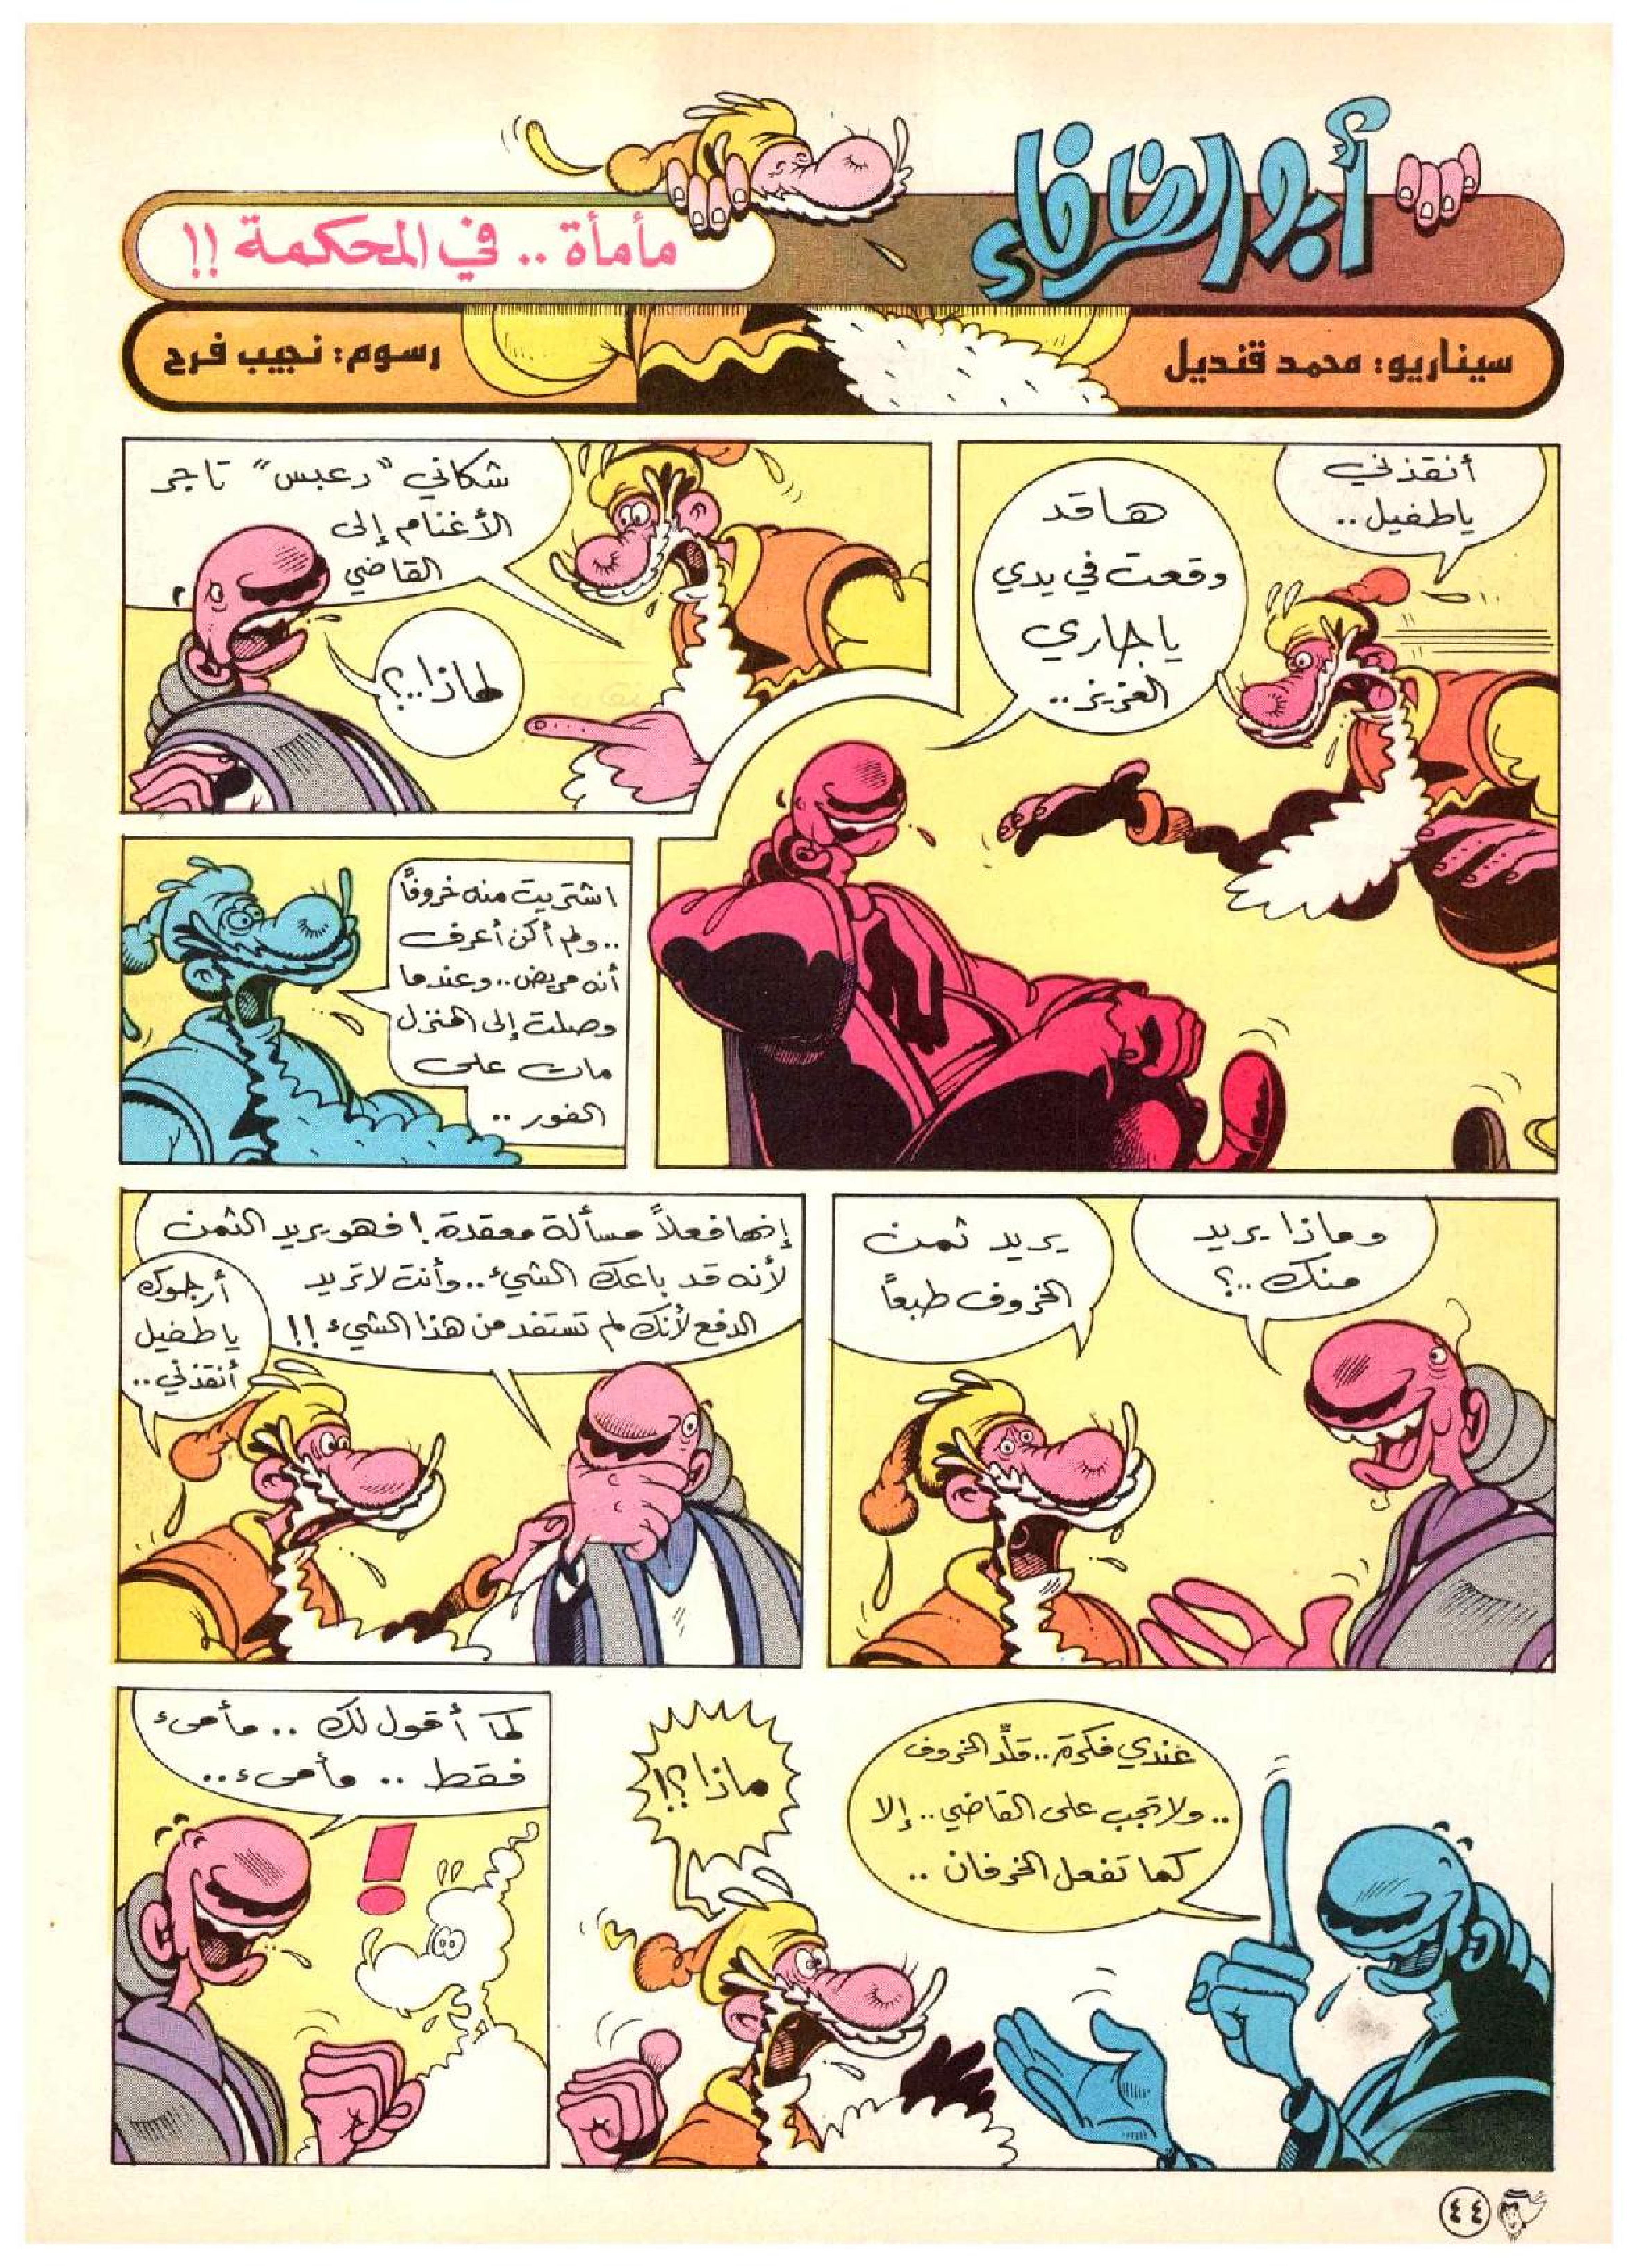 أبو الظرفاء
مأمأة .. في المحكمة !!
سيناريو: محمد قنديل
رسوم: نجيب فرح
أنقذني
ياطفيل ..
ها قد
وقعت في يدي
يا جاري
العزيز ..
شكاني "دعبس" تاجر
الأغنام إلى
القاضي
لماذا..؟
اشتريت منه خروفاً
.. ولم أكن أعرف
أنه مريض .. وعندما
وصلت إلى المنزل
مات على
الفور ..
وماذا يريد
منك ..؟
يريد ثمن
الخروف طبعاً
إنها فعلاً مسألة معقدة ! فهو يريد الثمن
لأنه قد باعك الشيء .. وأنت لا تريد
الدفع لأنك لم تستفد من هذا الشيء !!
أرجوك
يا طفيل
أنقذني ..
عندي فكرة .. قلّد الخروف
.. ولا تجب على القاضي .. إلا
كما تفعل الخرفان ..
ماذا ؟!
كما أقول لك .. مأمىء
فقط .. مأمىء ..
٤٤